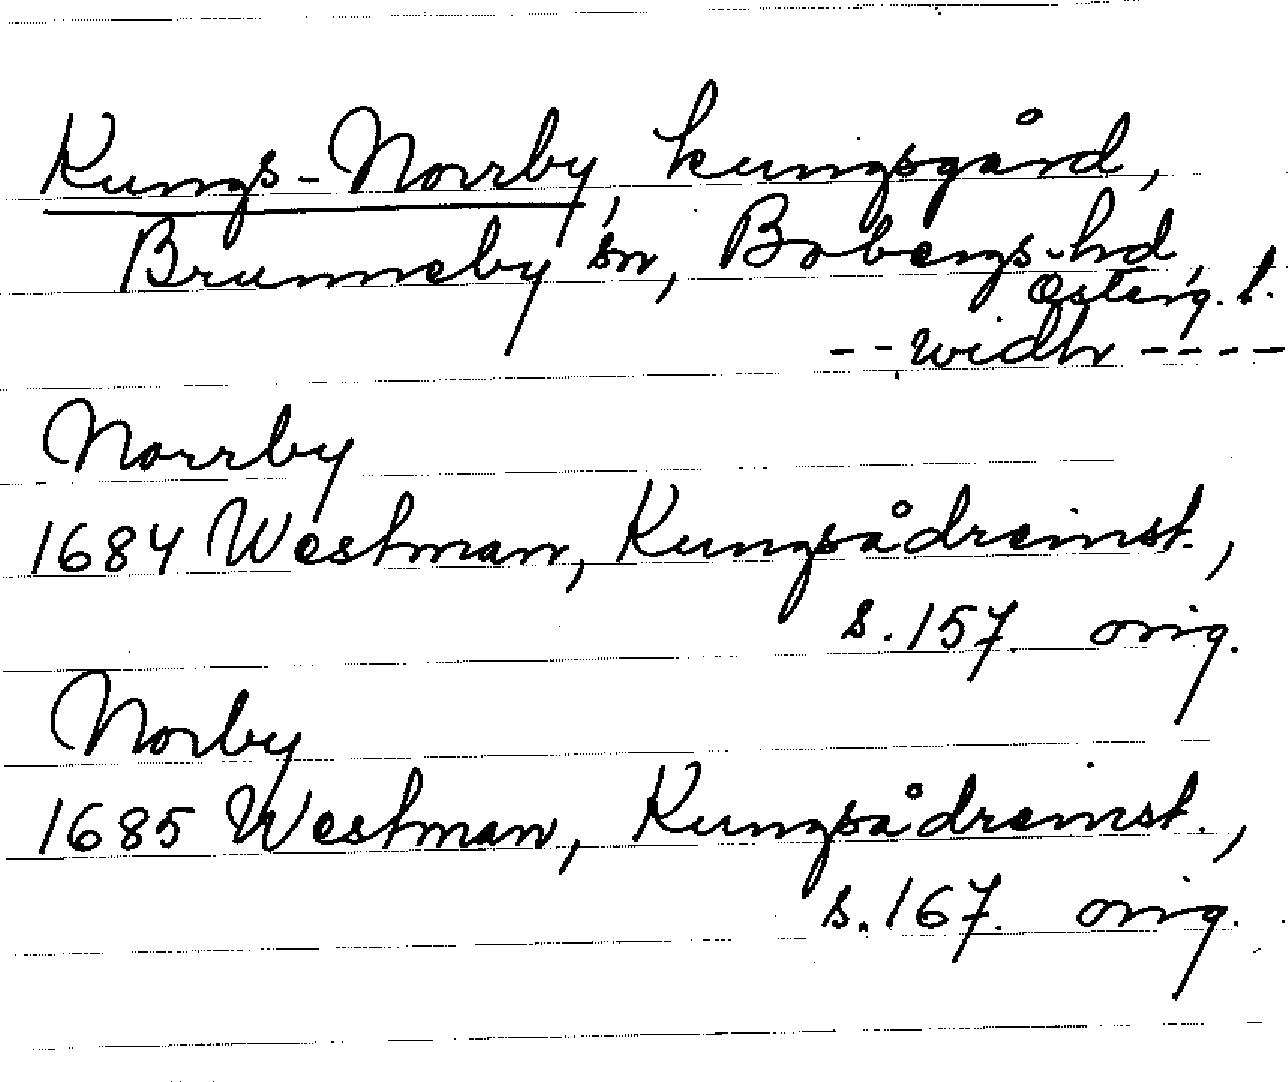 Kungs-Norrby, kungsgård,
Brunneby sn, Bobergs-hd,
Österg. l.
-- widh ----
Norrby
1684 Westman, Kungsådreinst.,
s. 157 orig.
Norby
1685 Westman, Kungsådreinst.,
s. 167. orig.